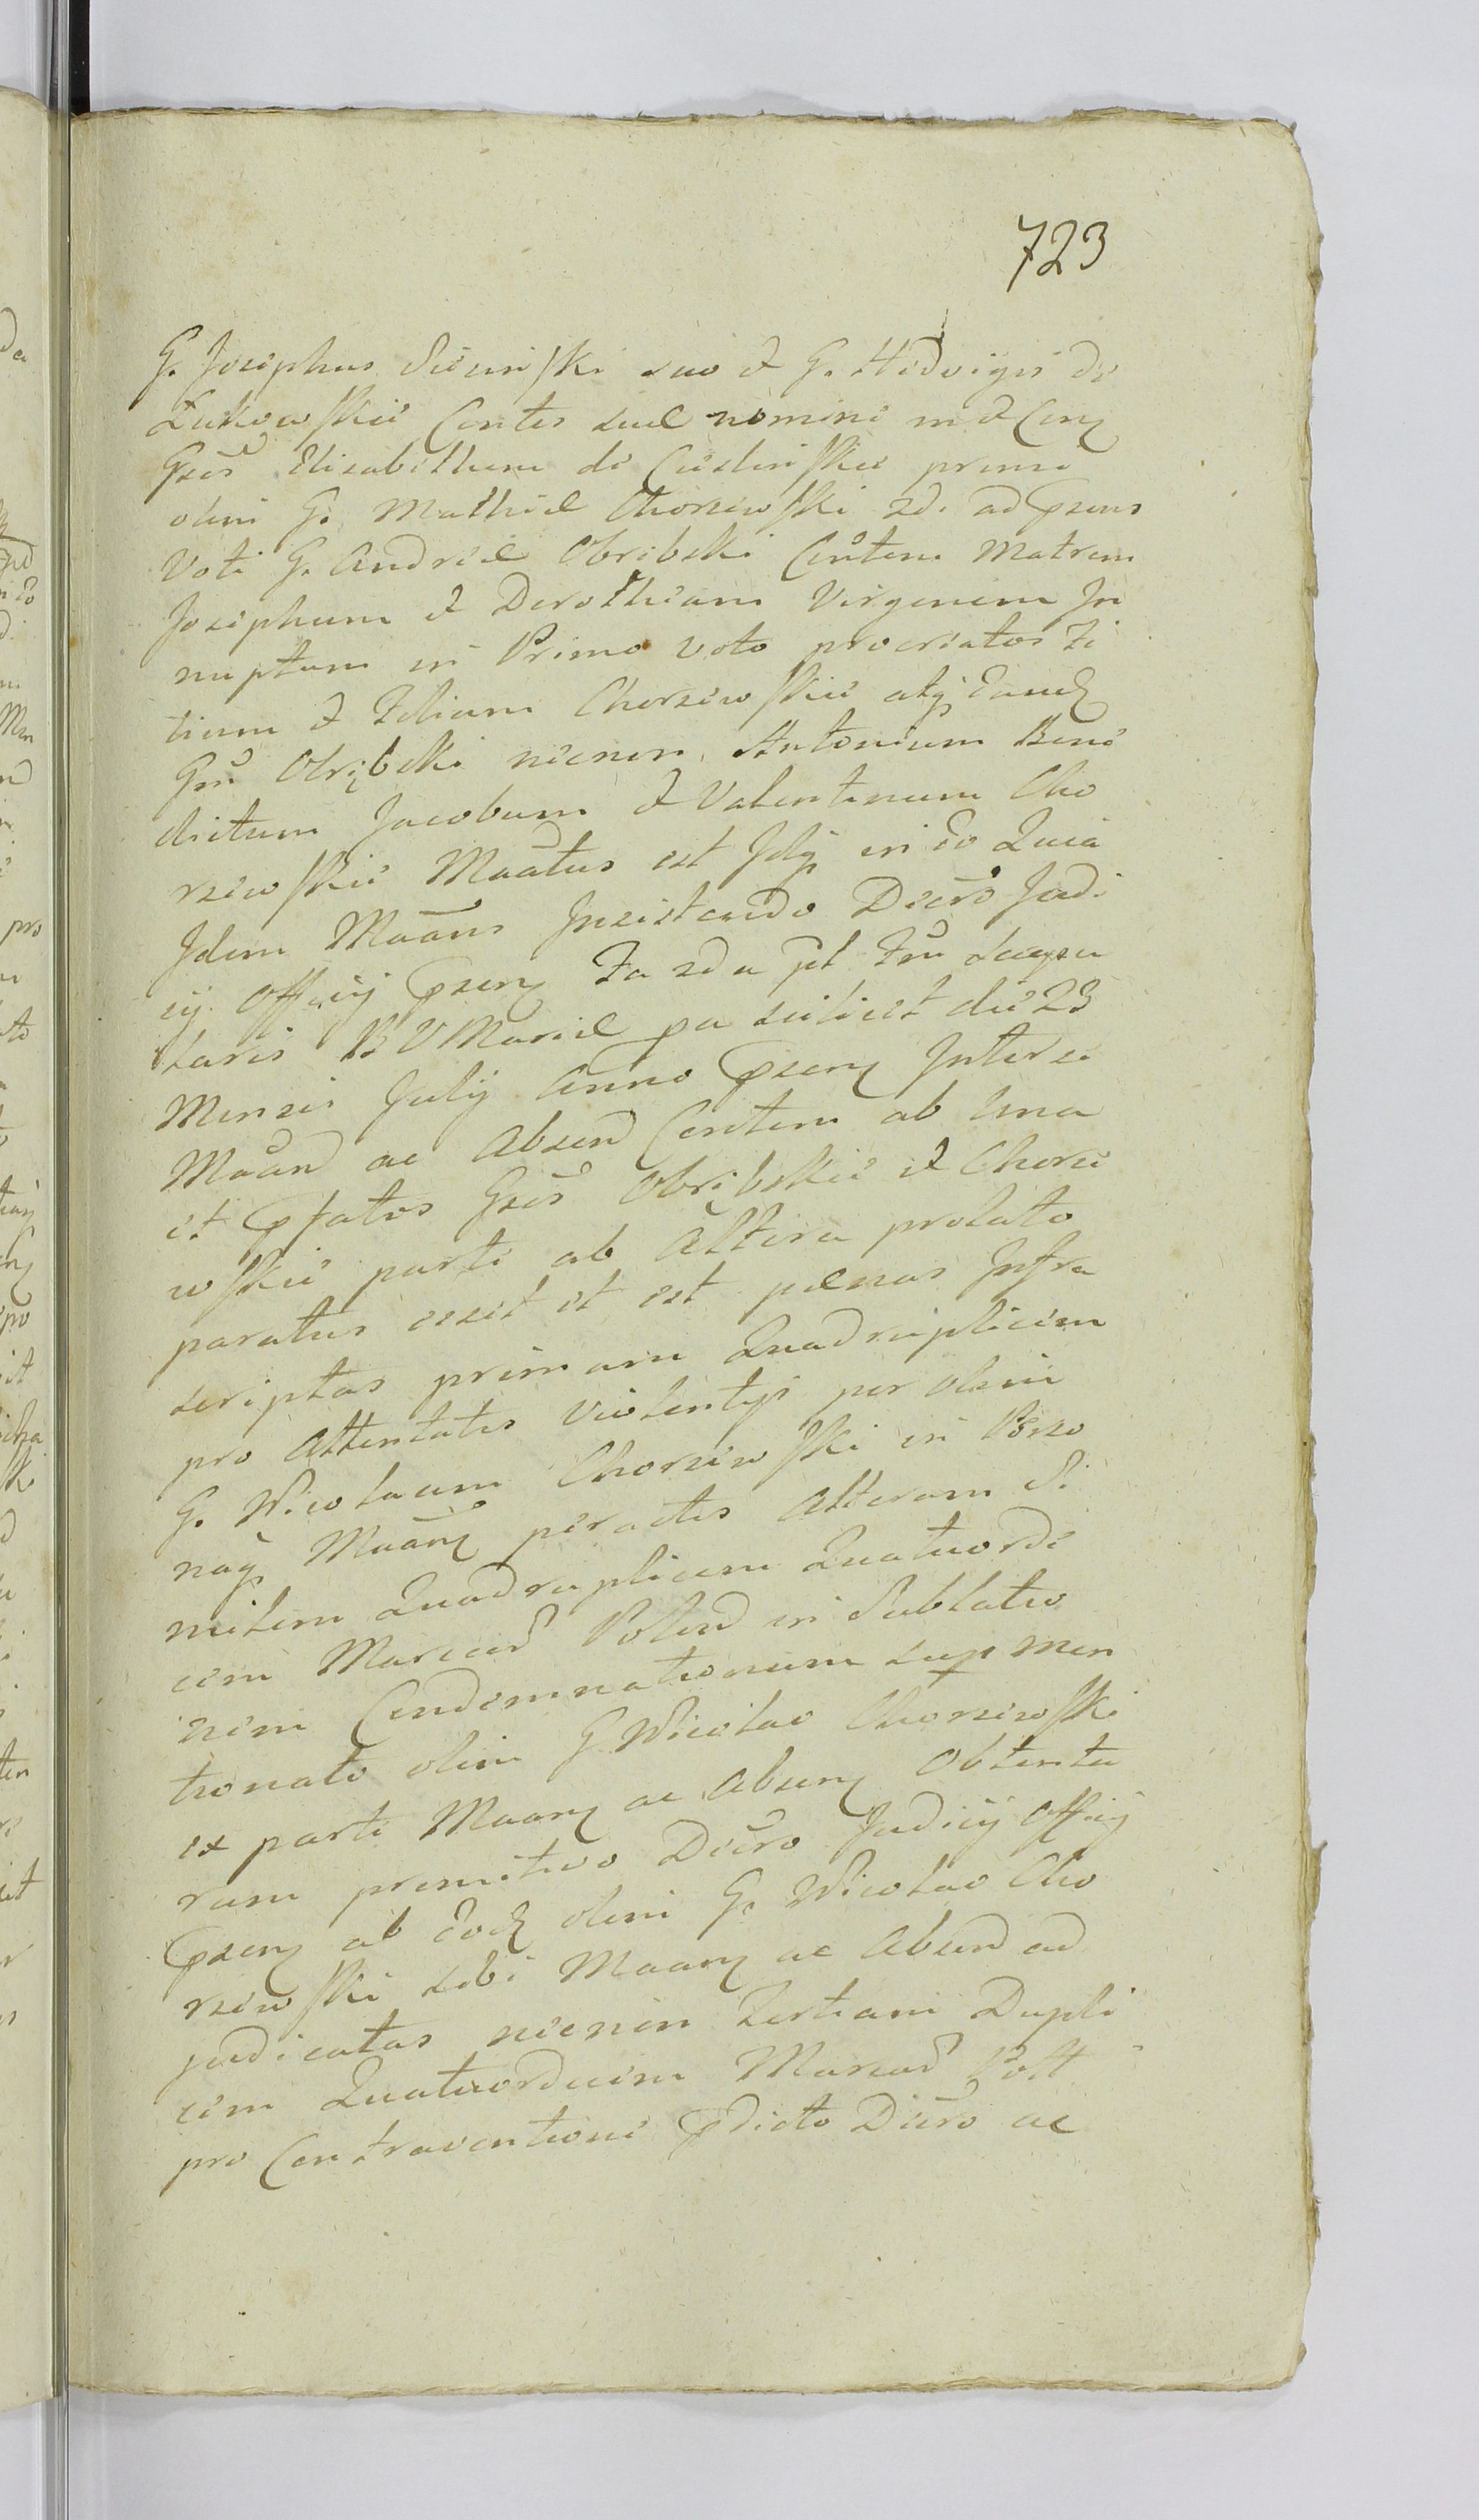 723
G. Josephus suo et G. Hedvigis de
Zukowskie Contis suae nomine
Gsos Elisabetham de primi
olim G. Mathiae Chorzewski 2di ad psens
Voti G. Andreae Obrębski Contem Matrem
Josephum et Dorotheam Virginem In
nuptam in Primo voto procreatos Fi
lium et Filiam Chorzewskie atq Eand
Gm Obrębski necnon Antonium Bene
dictum Jacobum et Valentinum Cho
rzewskie Maatus est Idq in eo Quia
Idem Maans Insistendo Decro Judi
cij Officij psens Fa 2da pt Fm Scapu
laris B V Mariae pa scilicet die 23
Mensis Julij Anno psens Inter se
Maan ac Absen Contem ab una
et pfatos Gsos Obrębskie et Chorze
wskie parte ab Altera prolato
paratus esset et est paenas Infra
scriptas primam Quadruplicem
pro Attentatis Violentijs per olim
G. Nicolaum Chorzewski in Perso
nas Maans peractis Alteram Si
milem Quadruplicem Quatuorde
cim Marcar Polon in Sublatio
nem Condemnationum sup men
tionato olim G Nicolao Chorzewski
ex parte Maans ac Absens Obtenta
rum primitivo Decro Judicij Officij
psens ab Eod olim G. Nicolao Cho
rzewski sibi Maans ac Absen ad
judicatas necnon Tertiam Dupli
cem Quatuordecim Marcar Poll
pro Contraventione pdicto Decro ac